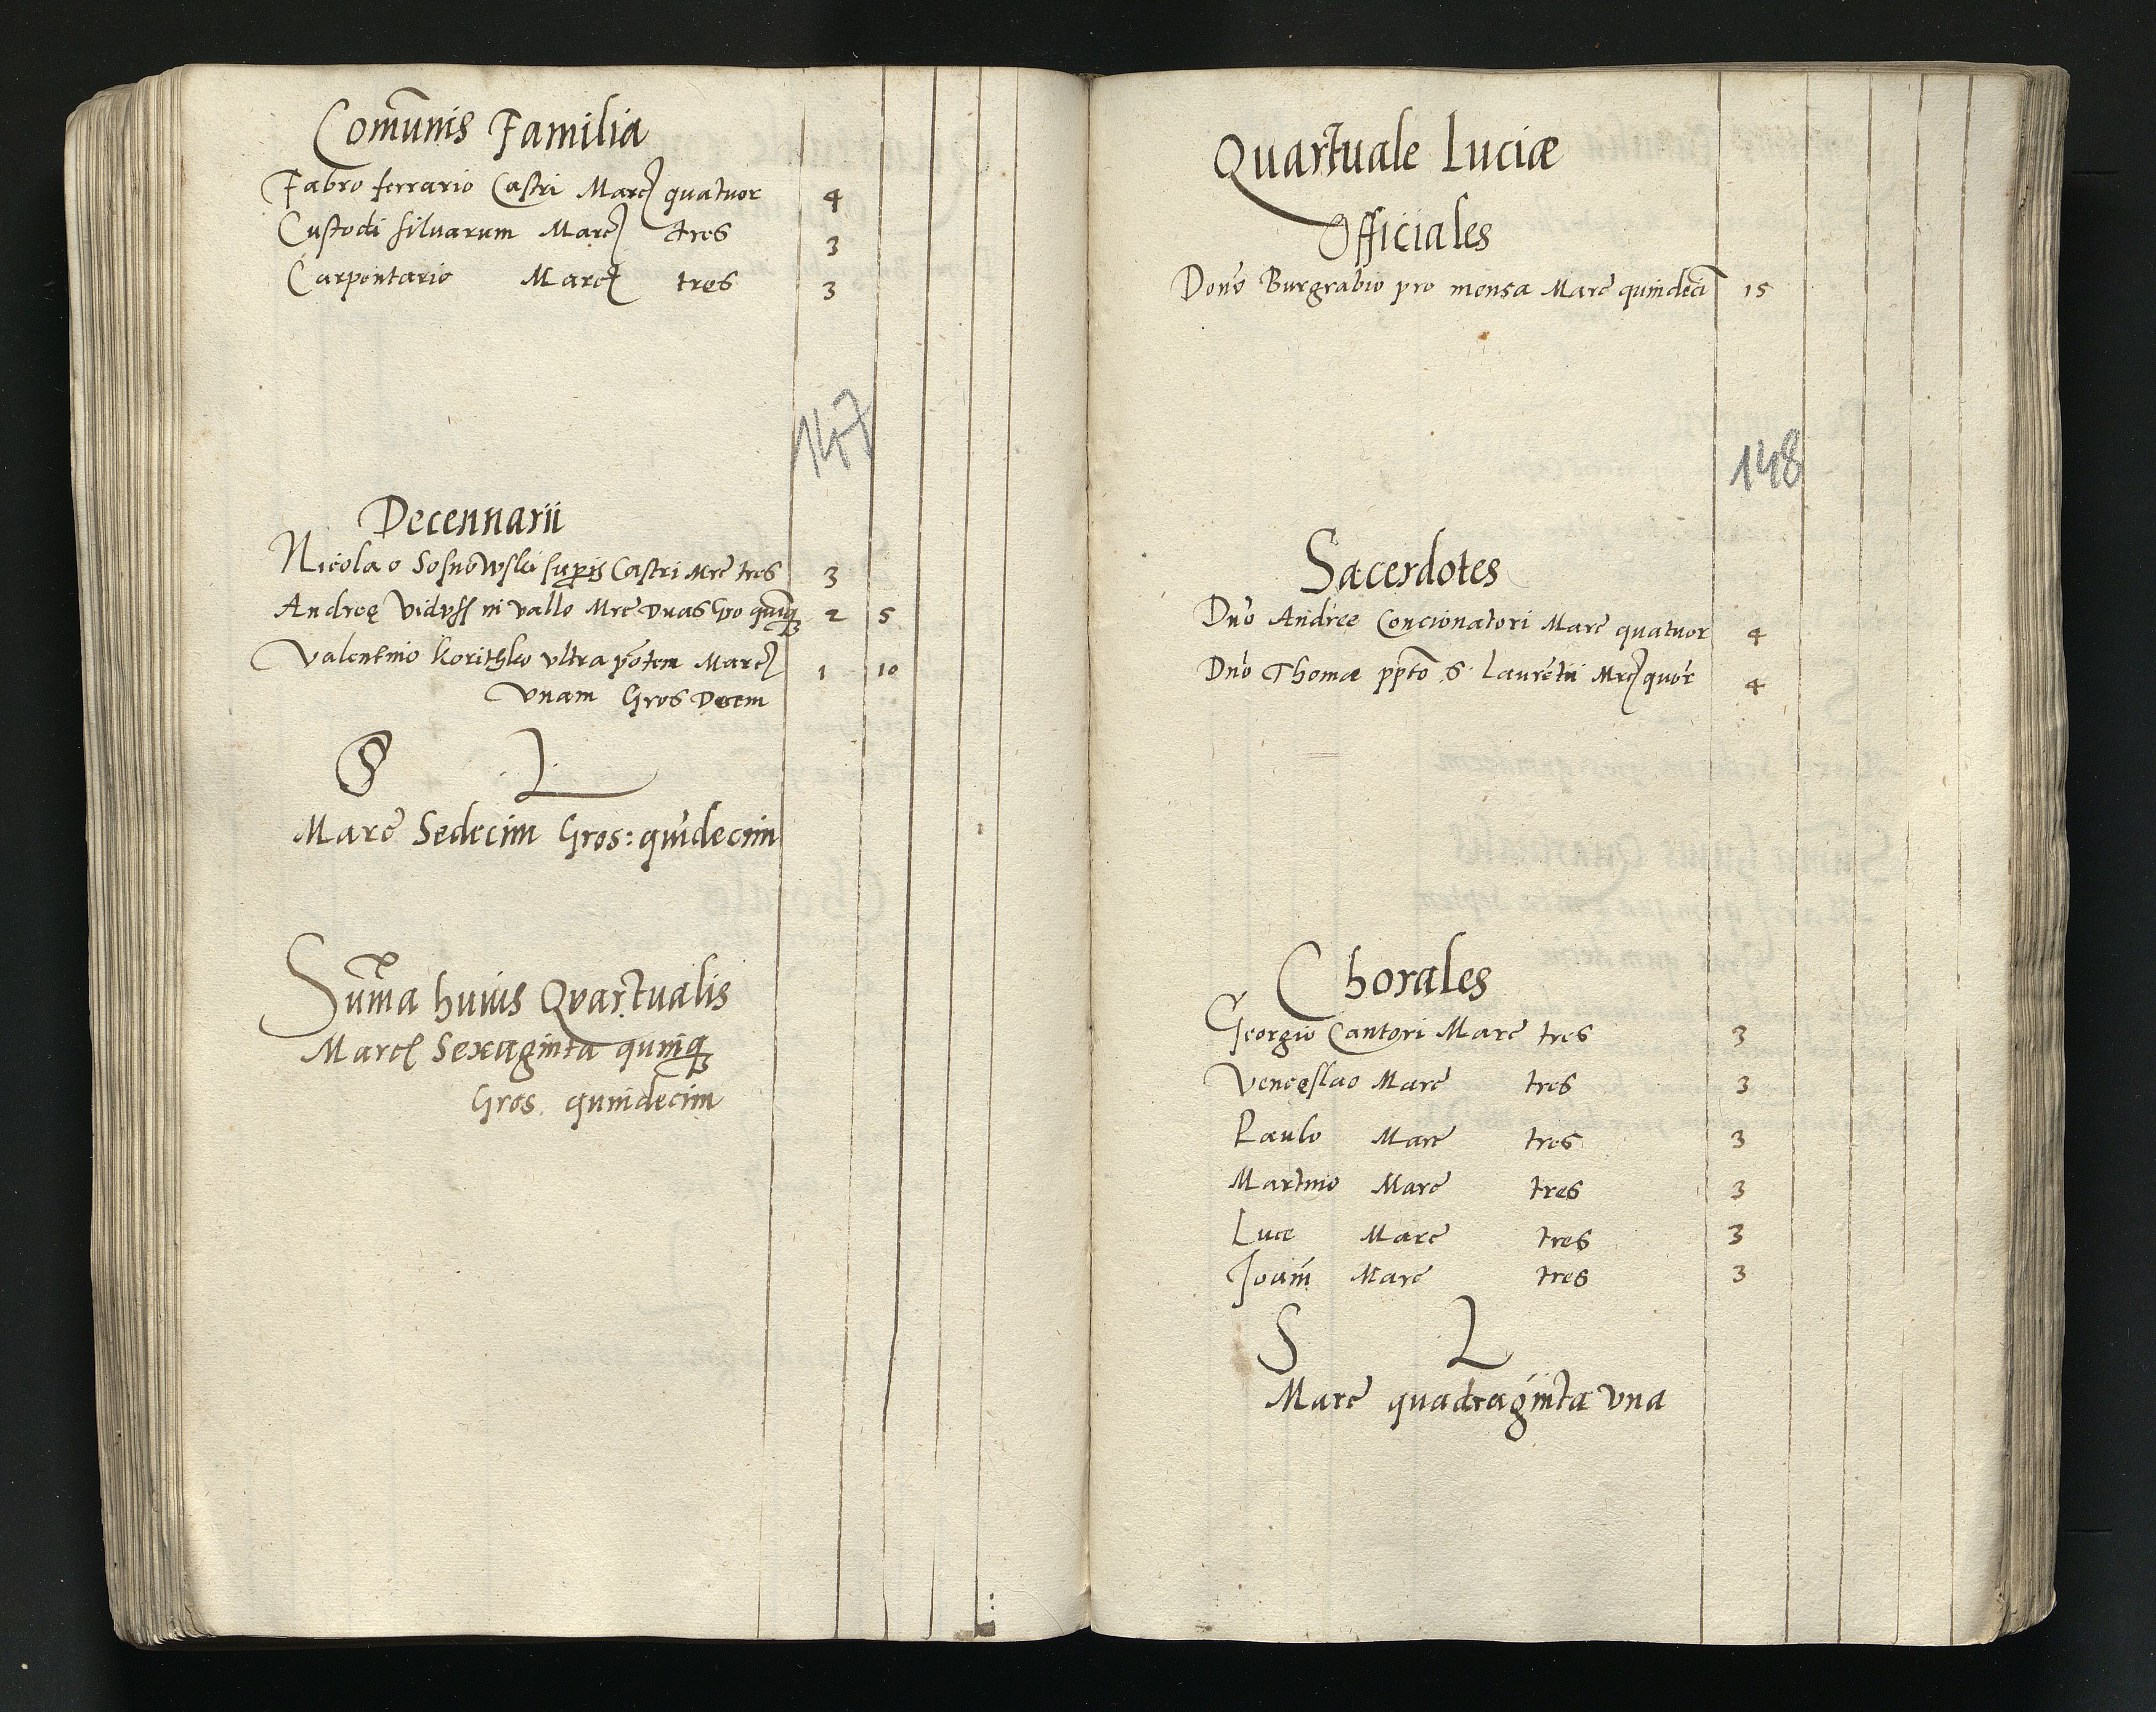 Com̄unis Familia
Fabro ferrario Castri Marc quatuor 4
Custodi siluarum Marc tres 3
Carpentario Marc tres 3
147
Decennarii
Nicolao Sosnowsky Castri Mrc tres 3
Andreę in vallo Mrc Duas Gro quinq 2 5
Valentino Korithko vltra pōtem Marc 1 10
Vnam Gros Decem
S L
Marc Sedecim Gros: quīdecim
Sum̄a huius Quartualis
Marc Sexaginta quinq
Gros quindecim
Quartuale Luciæ
Officiales
Dono Burgrabio pro mensa Marc quindeci 15
148
Sacerdotes
Dno Andree Concionatori Marc quatuor 4
Dno Thomæ ppto S. Laurētii Mrc quor 4
Chorales
Georgio Cantori Marc tres 3
Venceslao Marc tres 3
Paulo Marc tres 3
Martino Marc tres 3
Luce Marc tres 3
Joani Marc tres 3
S L
Marc quadraginta vna